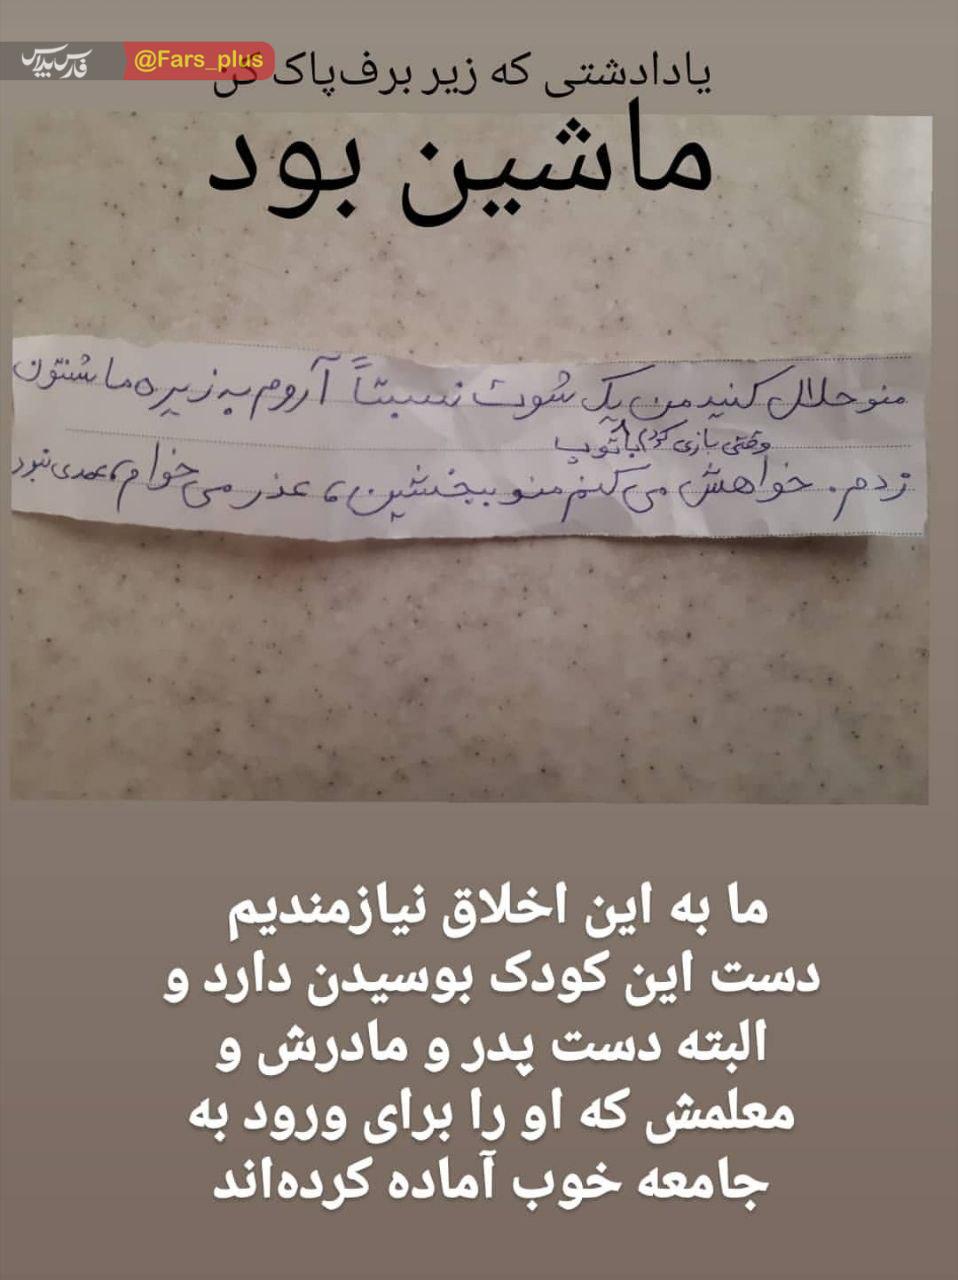 فارس پلاس
@Fars_plus
یادادشتی که زیر برف‌پاک کن
ماشین بود
منو حلال کنید من یک شوت نسبتاً آروم به زیره ماشنتون
وقتی بازی کردم با توپ
زدم. خواهش می کنم منو ببخشین، عذر می خوام، عمدی نبود
ما به این اخلاق نیازمندیم
دست این کودک بوسیدن دارد و
البته دست پدر و مادرش و
معلمش که او را برای ورود به
جامعه خوب آماده کرده‌اند